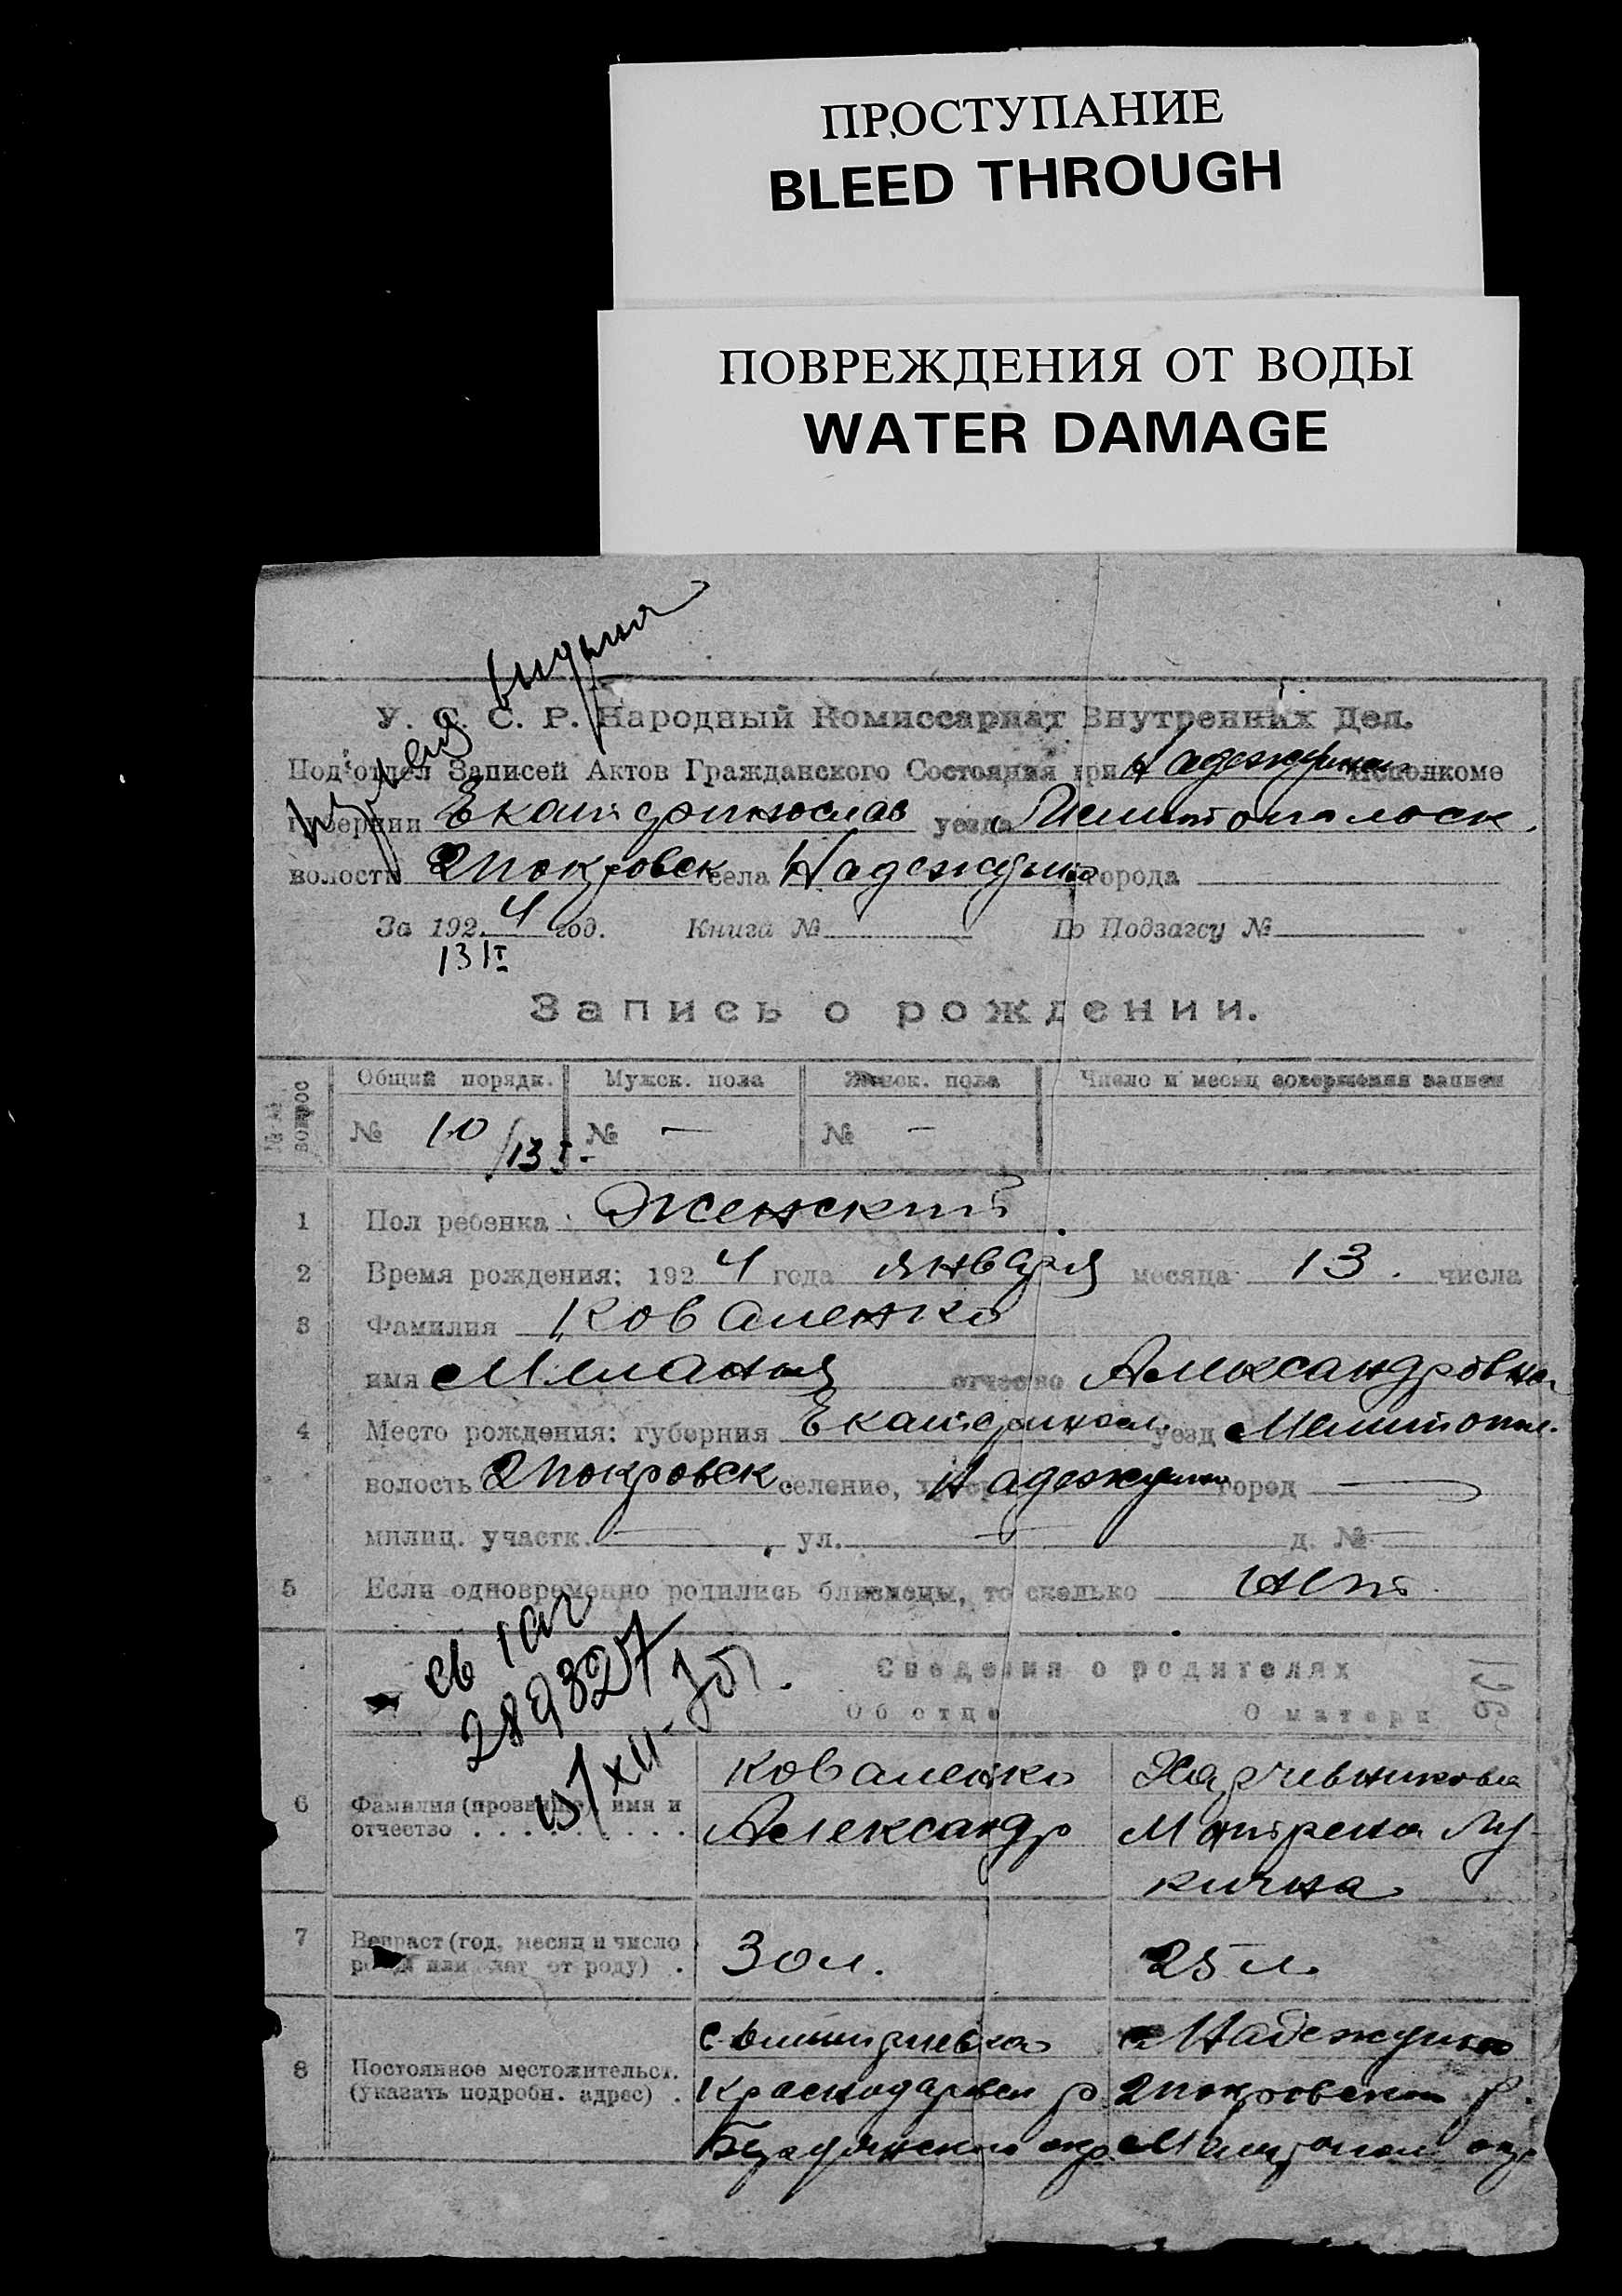 ПРОСТУПАНИЕ
BLEED THROUGH
ПОВРЕЖДЕНИЯ ОТ ВОДЫ
WATER DAMAGE
У. С. С. Р. Народный Комиссариат Внутренних Дел.
Под'отдел Записей Актов Гражданского Состояния при Надеждин Исполкоме
губернии Екатеринослав уезда Мелитопольск.
волости 2 Покровск села Надеждино города
За 1924 год. Книга № По Подзагсу №
13 I
Запись о рождении.
№№ вопрос
Общий порядк. Мужск. пола Женск. пола Число и месяц совершения записи
№ 10/13 I. № — № —
1 Пол ребенка Женский
2 Время рождения: 1924 года января месяца 13. числа
3 Фамилия Коваленко
имя Мелания отчество Александровна
4 Место рождения: губерния Екатериносл. уезд Мелитопол.
волость 2 Покровск. селение, хутор Надеждино город —
милиц. участк. — ул. — д. № —
5 Если одновременно родились близнецы, то сколько нет
св
289327
Сведения о родителях
Об отце О матери
6 Фамилия (прозвище) имя и отчество
Коваленко
Александр
Матрена Лу-
кична
7 Возраст (год, месяц и число рожд. или лет от роду)
30 л. 25 л.
8 Постоянное местожительст. (указать подробн. адрес)
с. Надеждино
р. 2 Покровского р.
Бердянского окр. Мелитопол окр